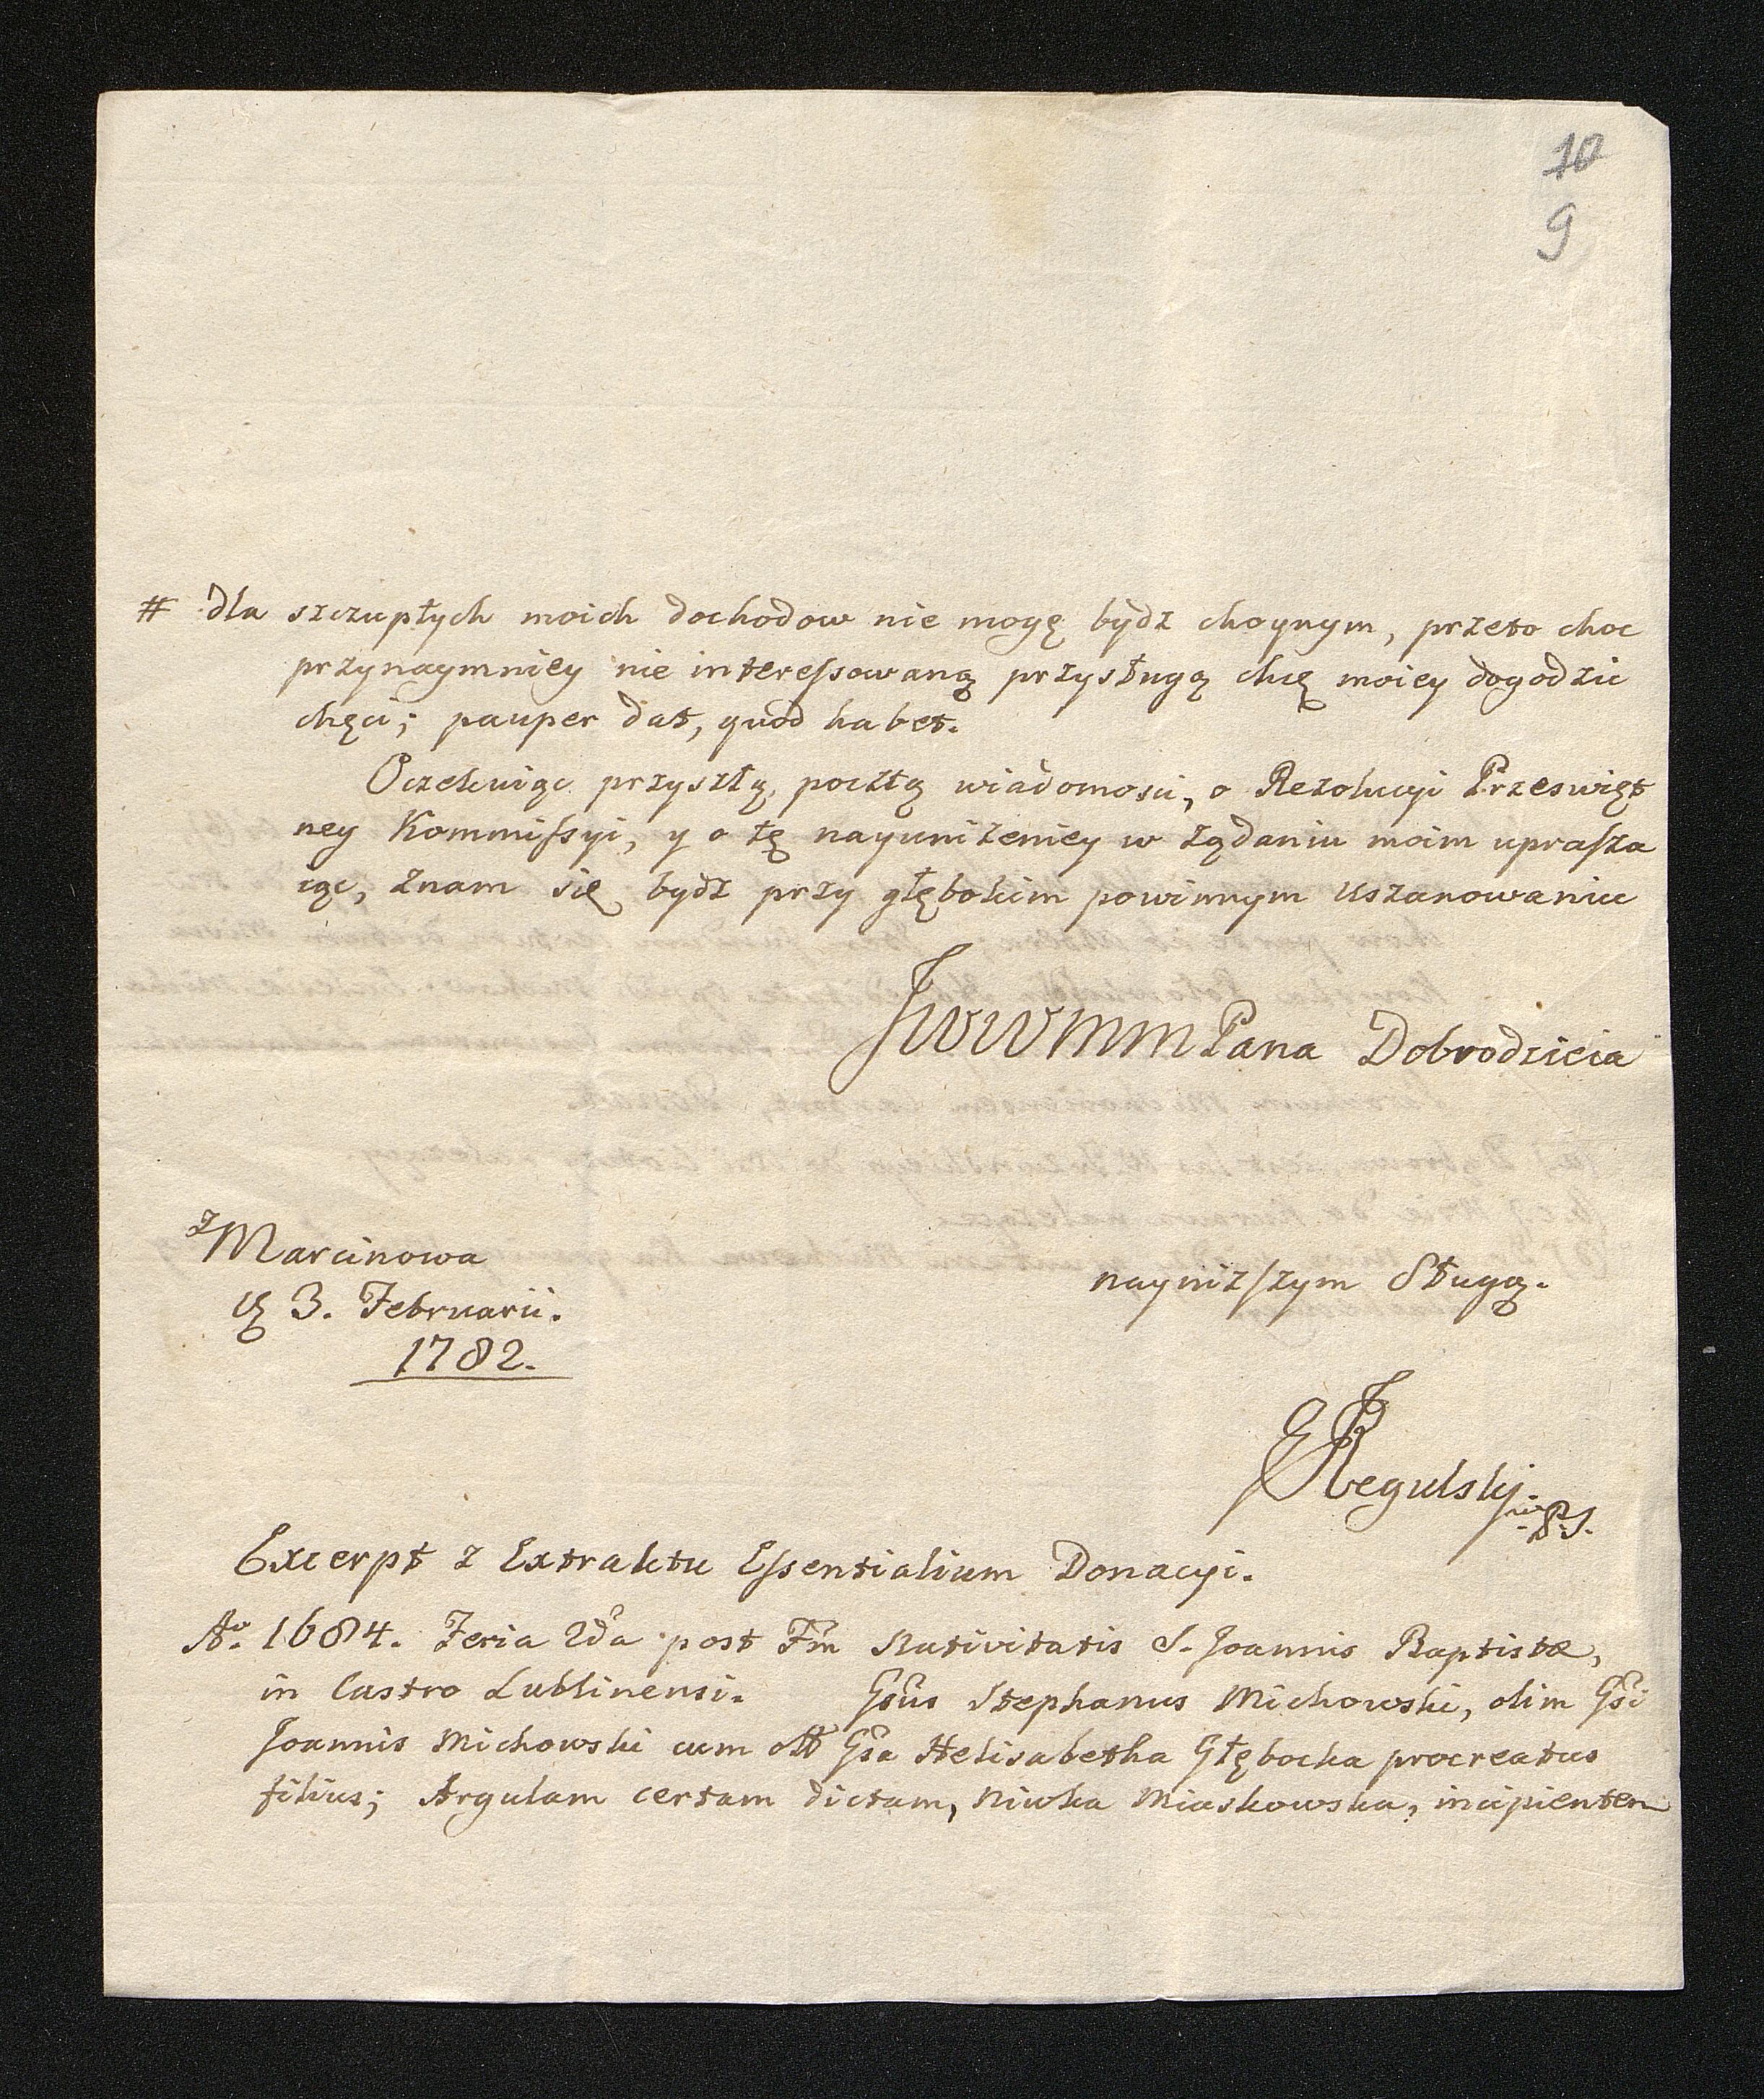 10
9
# dla szczupłych moich dochodow nie mogę bydz choynym, przeto choc
przynaymniey nie interessowaną przysługą chcę moiey dogodzic
chęci; pauper dat, quod habet.
Oczekuiąc przyszłą pocztą wiadomosci, o Rezolucyi Przeswięt
ney Kommissyi, y o tę nayuniżeniey w żądaniu moim uprasza
iąc, znam się bydz przy głębokim powinnym uszanowaniu
JWWMM Pana Dobrodzieia
z Marcinowa
3. Februarii.
1782.
nayniższym Sługą.
Regulski
Excerpt z Extraktu Essentialium Donacyi.
Aº. 1684. Feria 2da post Fm Nativitatis S. Joannis Baptistæ,
in Castro Lublinensi. Gsus Stephanus Michowski, olim Gsi
Joannis Michowski cum olt Gsa Helisabetha Głębocka procreatus
filius; Argulam certam dictam, Niwka Miaskowska, incipientem